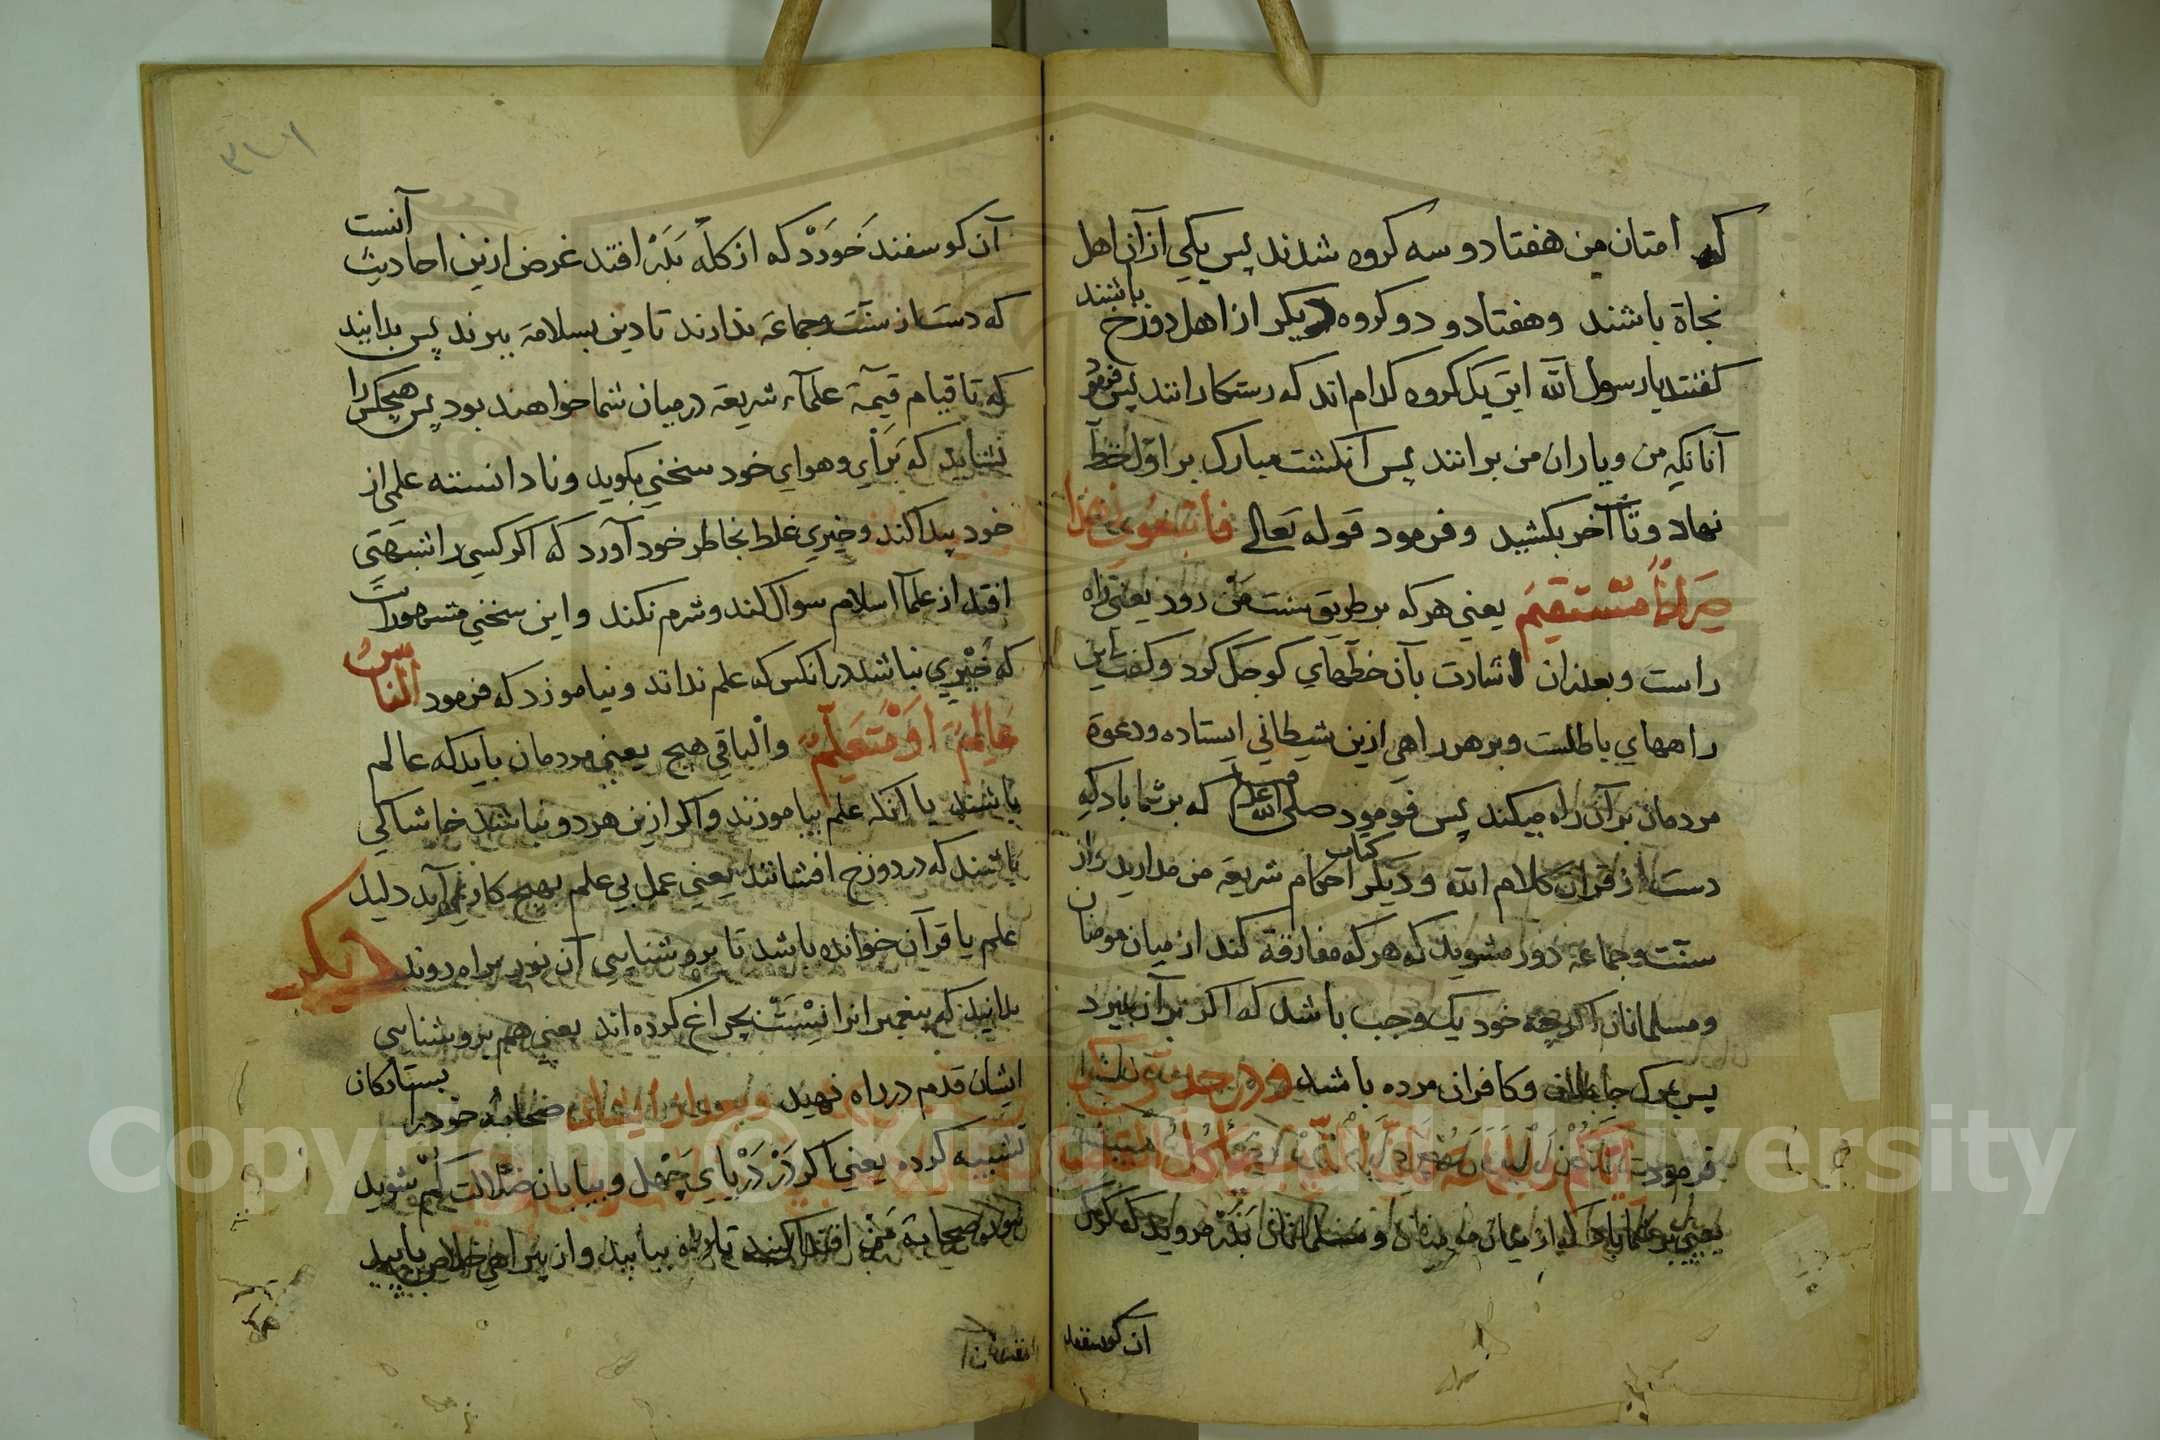 که امتان من هفتاد و سه کروه شدند پس یکی از آن اهل
نجاة باشند و هفتاد و دو کروه دیکر از اهل دوزخ باشند
کفتند یا رسول الله این یک کروه کدام اند که رستکارانند پس فرمود
آنانکه من و یاران من برانند پس انکشت مبارک بر اول خط
نهاد و تا آخر بکشید و فرمود قوله تعالی فاتبعونی هذا
صراط مستقیم یعنی هر که بر طریق سنت من رود یعنی راه
راست و بعد از ان اشارت بآن خطهای کوچک کرد و کفت این
راههای باطلست و بر هر راهی ازین شیطانی ایستاده و دعوة
مردمان بر آن راه میکند پس فرمود صلی الله علیه که بر شما باد که
دست از قرآن کلام الله و دیکر کتاب احکام شریعة من مدارید و از
سنت و جماعة دور مشوید که هر که مفارقة کند از میان مومنان
و مسلمانان اکرچه خود یک وجب باشد که اکر بر آن بمیرد
پس بمرک جاهلان و کافران مرده باشد و در حدیثی دیکر
فرمودت
یعنی بر شما باد که از میان مومنان و مسلمانان بدر مروید که کرک
آن کوسفند
آن کوسفند خورد که از کله بدر افتد غرض ازین احادیث آنست
که دست از سنت و جماعة ندارند تا دین بسلامة ببرند پس بدانید
که تا قیام قیمة علمآء شریعة در میان شما خواهند بود پس هیچکس را
نشاید که برای و هوای خود سخنی بکوید و نادانسته علمی از
خود پیدا کند و خبری غلط بخاطر خود آورد که اکر کسی را شبهتی
افتد از علمآ اسلام سوال کند و شرم نکند و این سخنی مشهور است
که خیری نباشد در آنکس که علم نداند و نیاموزد که فرمود الناس
عالم او متعلم والباقی هیچ یعنی مردمان باید که عالم
باشند یا آنکه علم بیاموزند و اکر ازین هر دو نباشند خاشاکی
باشند که در دوزخ افشانند یعنی عمل بی علم بهیچ کار نمی آید دلیل
علم یا قرآن خوانده باشد تا بروشنایی آن نور براه روند دیکر
بدانید که پیغمبر انرا نسبت بچراغ کرده اند یعنی هم بروشنایی
ایشان قدم در راه نهید صحابه خود را بستارکان
تشبیه کرده یعنی اکر در دریای جهل و بیابان ضلالت کم شوید
بنور صحابة من اقتدا کنید تا راه بیابید و از بیراهی خلاص یابید